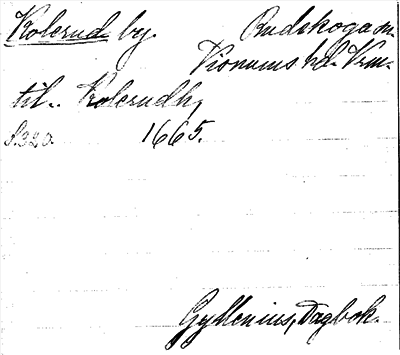 Kolerud by. Rudskoga sn.
Visnums hd. Vrm.
til.. Kolerudh,
S. 320. 1665.
Gyllenius, Dagbok.